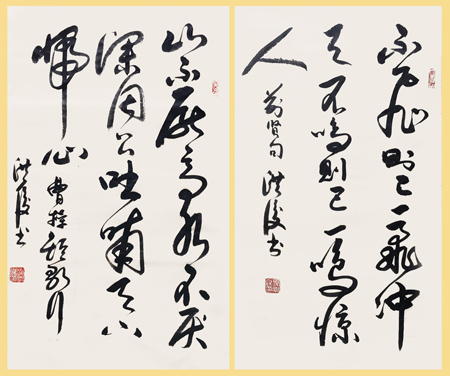 不飞则已一飞冲
天不鸣则已一鸣惊
人
前贤句 洪书
山不厌高水不厌
深周公吐哺天下
归心
曹操短歌行
洪书